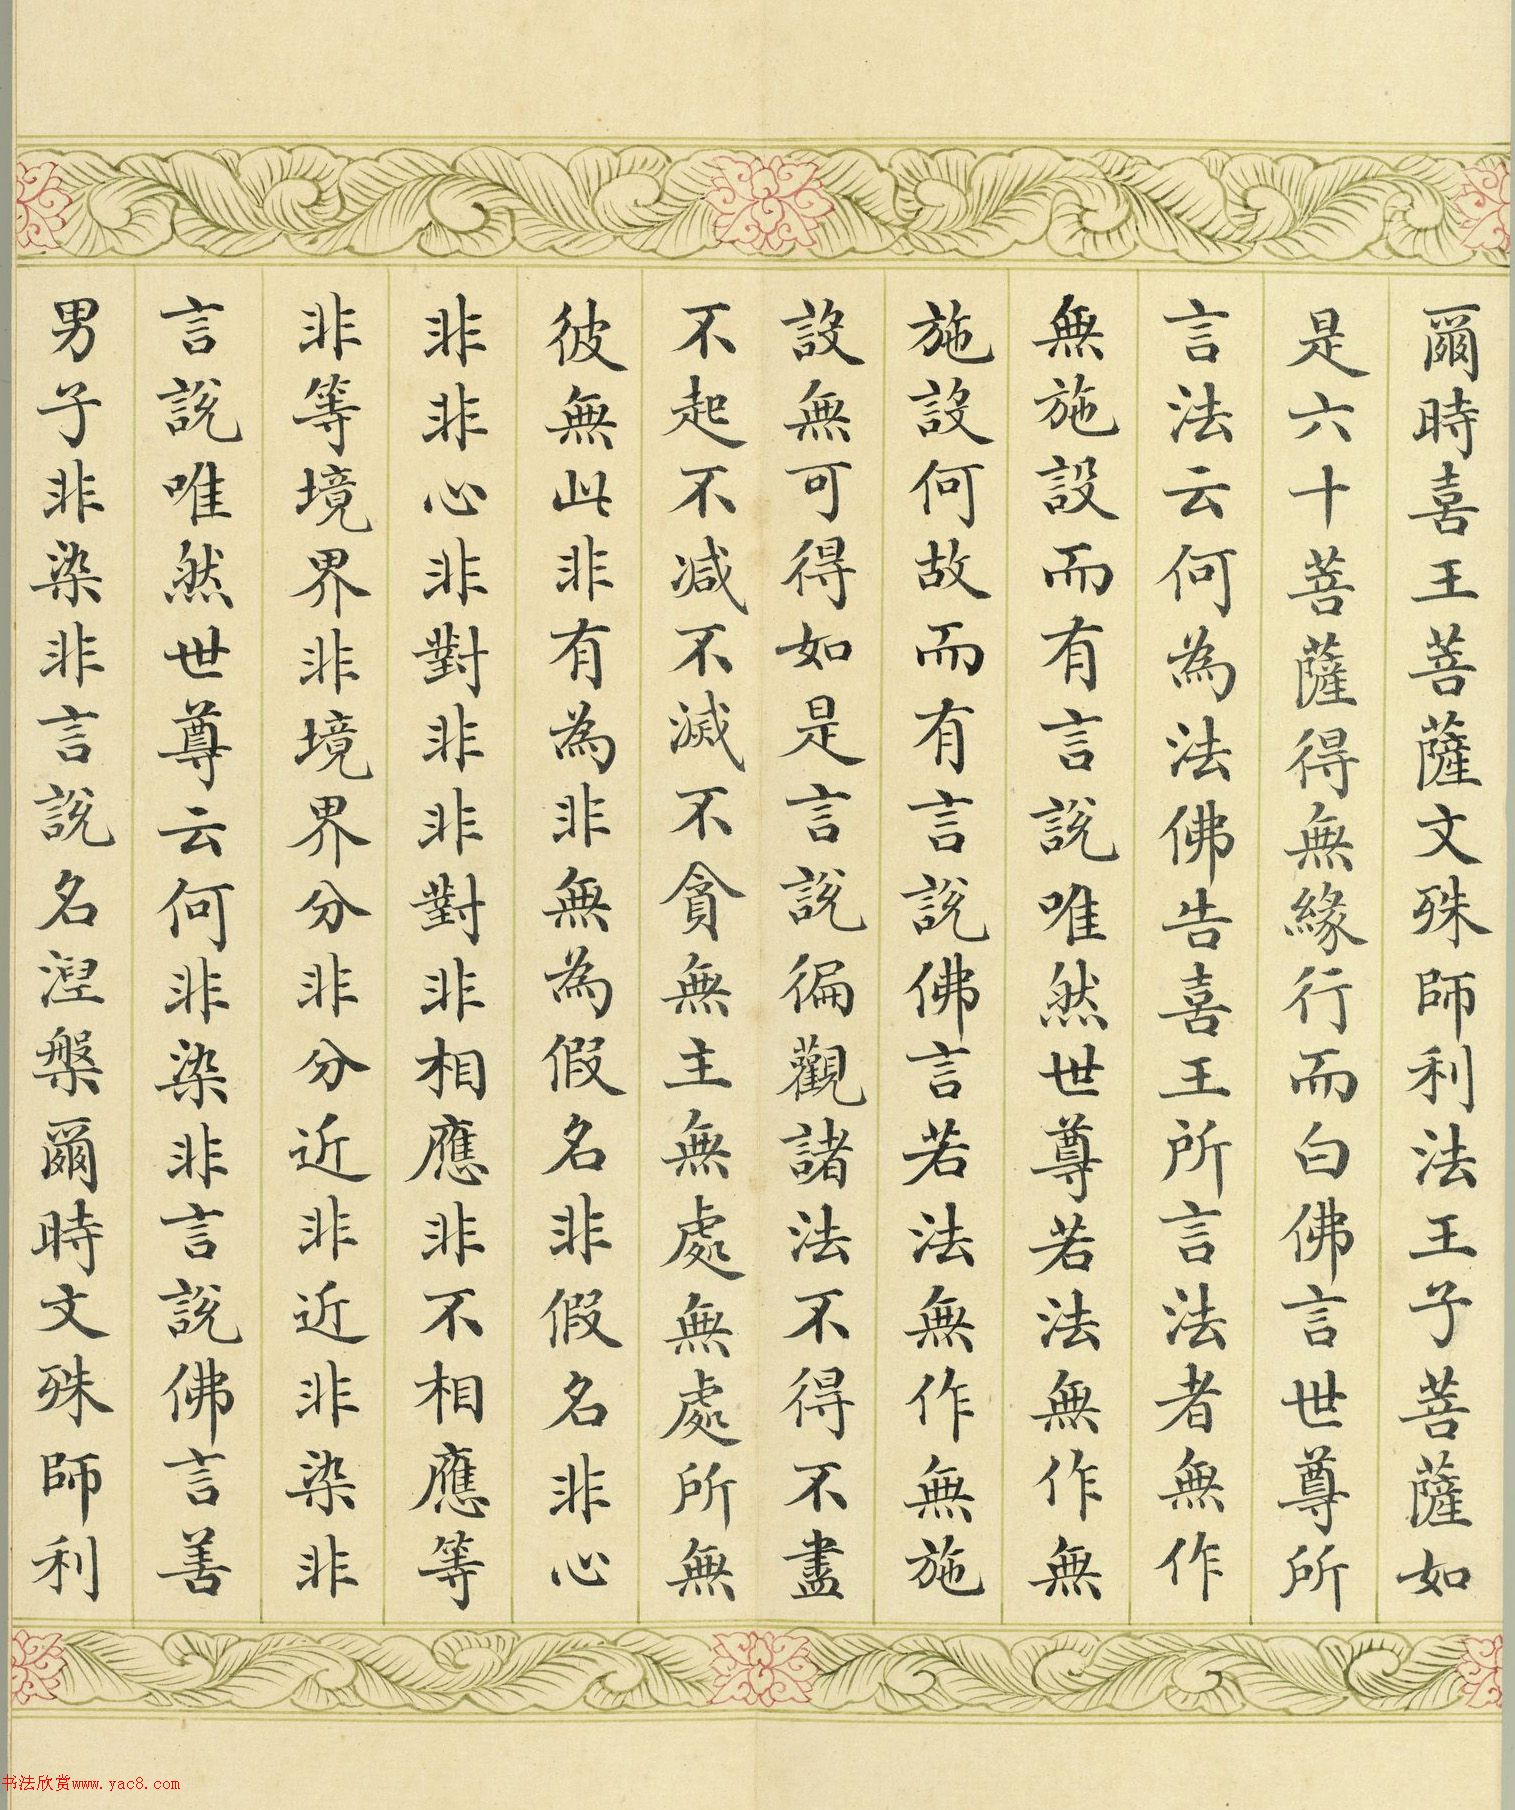 爾時喜王菩薩文殊師利法王子菩薩如
是六十菩薩得無緣行而白佛言世尊所
言法云何為法佛告喜王所言法者無作
無施設而有言說唯然世尊若法無作無
施設何故而有言說佛言若法無作無施
設無可得如是言說徧觀諸法不得不盡
不起不減不滅不貪無主無處無處所無
彼無此非有為非無為假名非假名非心
非非心非對非非對非相應非不相應等
非等境界非境界分非分近非近非染非
言說唯然世尊云何非染非言說佛言善
男子非染非言說名涅槃爾時文殊師利
书法欣赏www.yac8.com